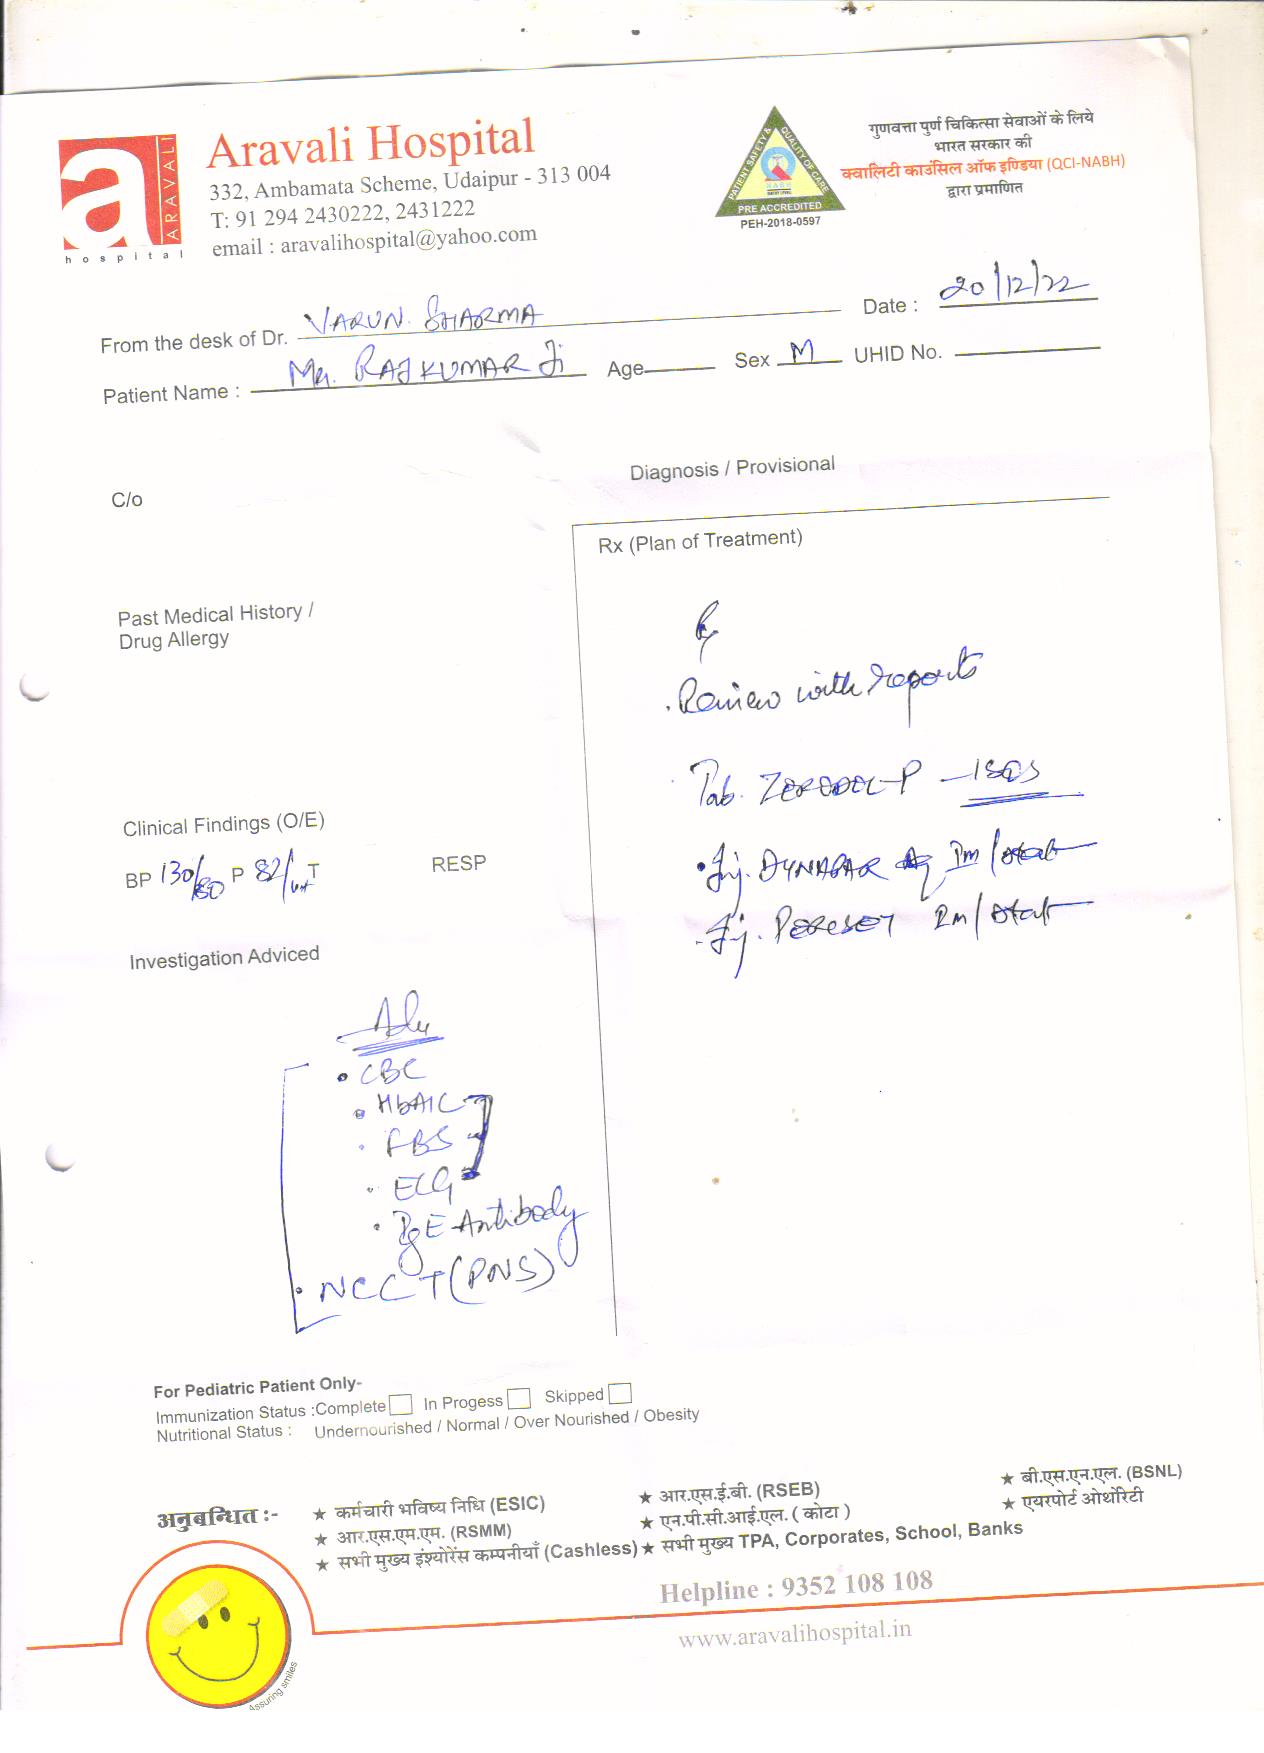 a ARAVALI
hospital
Aravali Hospital
332, Ambamata Scheme, Udaipur - 313 004
T: 91 294 2430222, 2431222
email : aravalihospital@yahoo.com
PATIENT SAFETY & QUALITY OF CARE
NABH
PRE ACCREDITED
PEH-2018-0597
गुणवत्ता पुर्ण चिकित्सा सेवाओं के लिये
भारत सरकार की
क्वालिटी काउंसिल ऑफ इण्डिया (QCI-NABH)
द्वारा प्रमाणित
From the desk of Dr. VARUN SHARMA Date : 20/12/22
Patient Name : Mr. RAJKUMAR Ji Age Sex M UHID No.
C/o
Diagnosis / Provisional
Past Medical History /
Drug Allergy
Clinical Findings (O/E)
BP 130/80 P 82/ T RESP
Investigation Adviced
Adv
• CBC
• HbA1C
• FBS
• ECG
• IgE Antibody
• NCCT (PNS)
Rx (Plan of Treatment)
Rx
. Review with reports
Tab. ZERODOL-P - 1SOS
• Inj. DYNAPAR AQ Im/stat
- Inj. Im/stat
For Pediatric Patient Only-
Immunization Status :Complete In Progess Skipped
Nutritional Status : Undernourished / Normal / Over Nourished / Obesity
अनुबन्धित :-
★ कर्मचारी भविष्य निधि (ESIC) ★ आर.एस.ई.बी. (RSEB) ★ बी.एस.एन.एल. (BSNL)
★ आर.एस.एम.एम. (RSMM) ★ एन.पी.सी.आई.एल. ( कोटा ) ★ एयरपोर्ट ओथोरिटी
★ सभी मुख्य इंश्योरेंस कम्पनीयाँ (Cashless) ★ सभी मुख्य TPA, Corporates, School, Banks
Helpline : 9352 108 108
www.aravalihospital.in
Assuring smiles